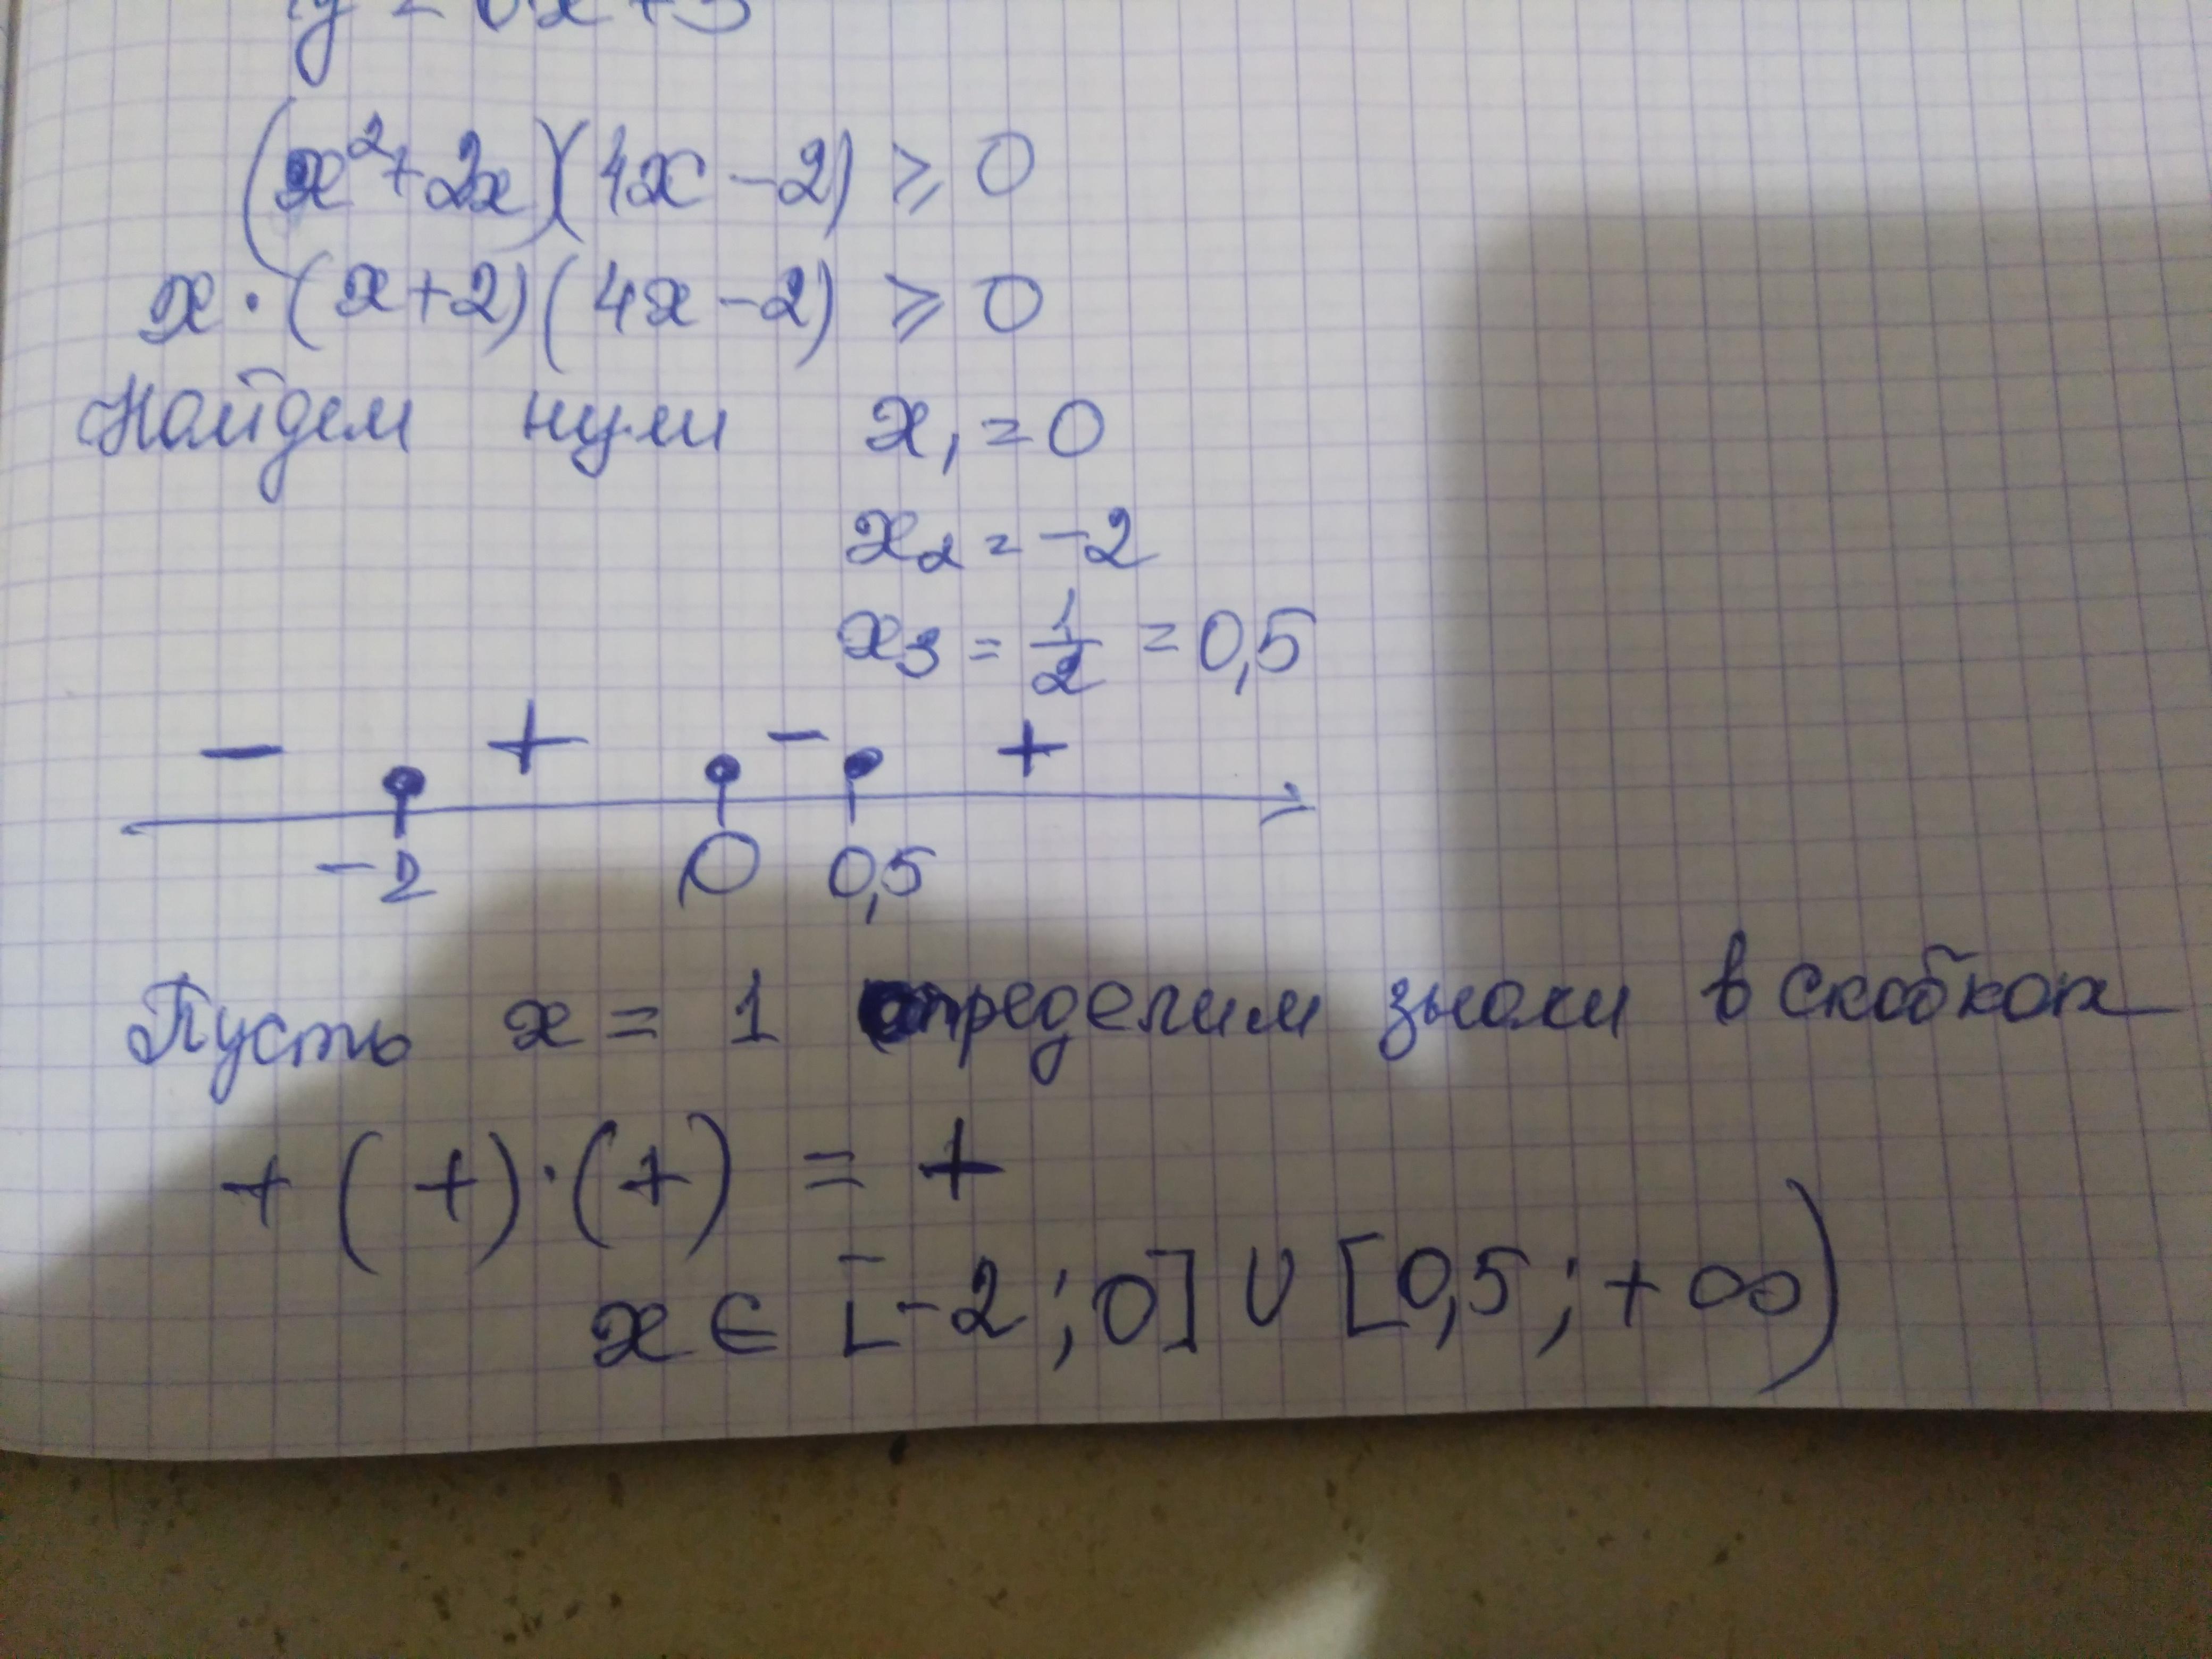 (x²+2x)(4x-2) ≥ 0
x·(x+2)(4x-2) ≥ 0
Найдем нули x₁ = 0
x₂ = -2
x₃ = 1/2 = 0,5
- + - +
-2 0 0,5
Пусть x = 1 определим знаки в скобках
+(+)·(+) = +
x ∈ [-2; 0] ∪ [0,5; +∞)